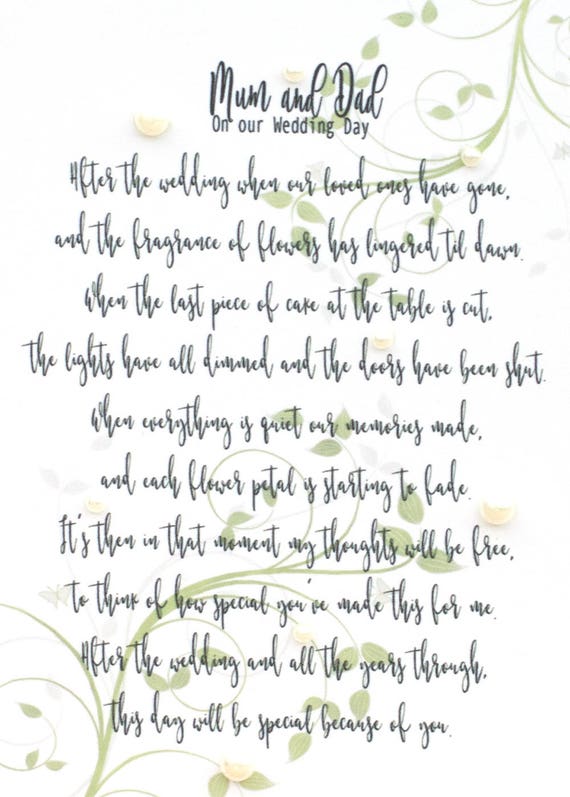 Mum and Dad
On our Wedding Day
After the wedding when our loved ones have gone,
and the fragrance of flowers has lingered til dawn.
When the last piece of cake at the table is cut,
the lights have all dimmed and the doors have been shut.
When everything is quiet our memories made,
and each flower petal is starting to fade.
It's then in that moment my thoughts will be free,
to think of how special you've made this for me.
After the wedding and all the years through,
this day will be special because of you.